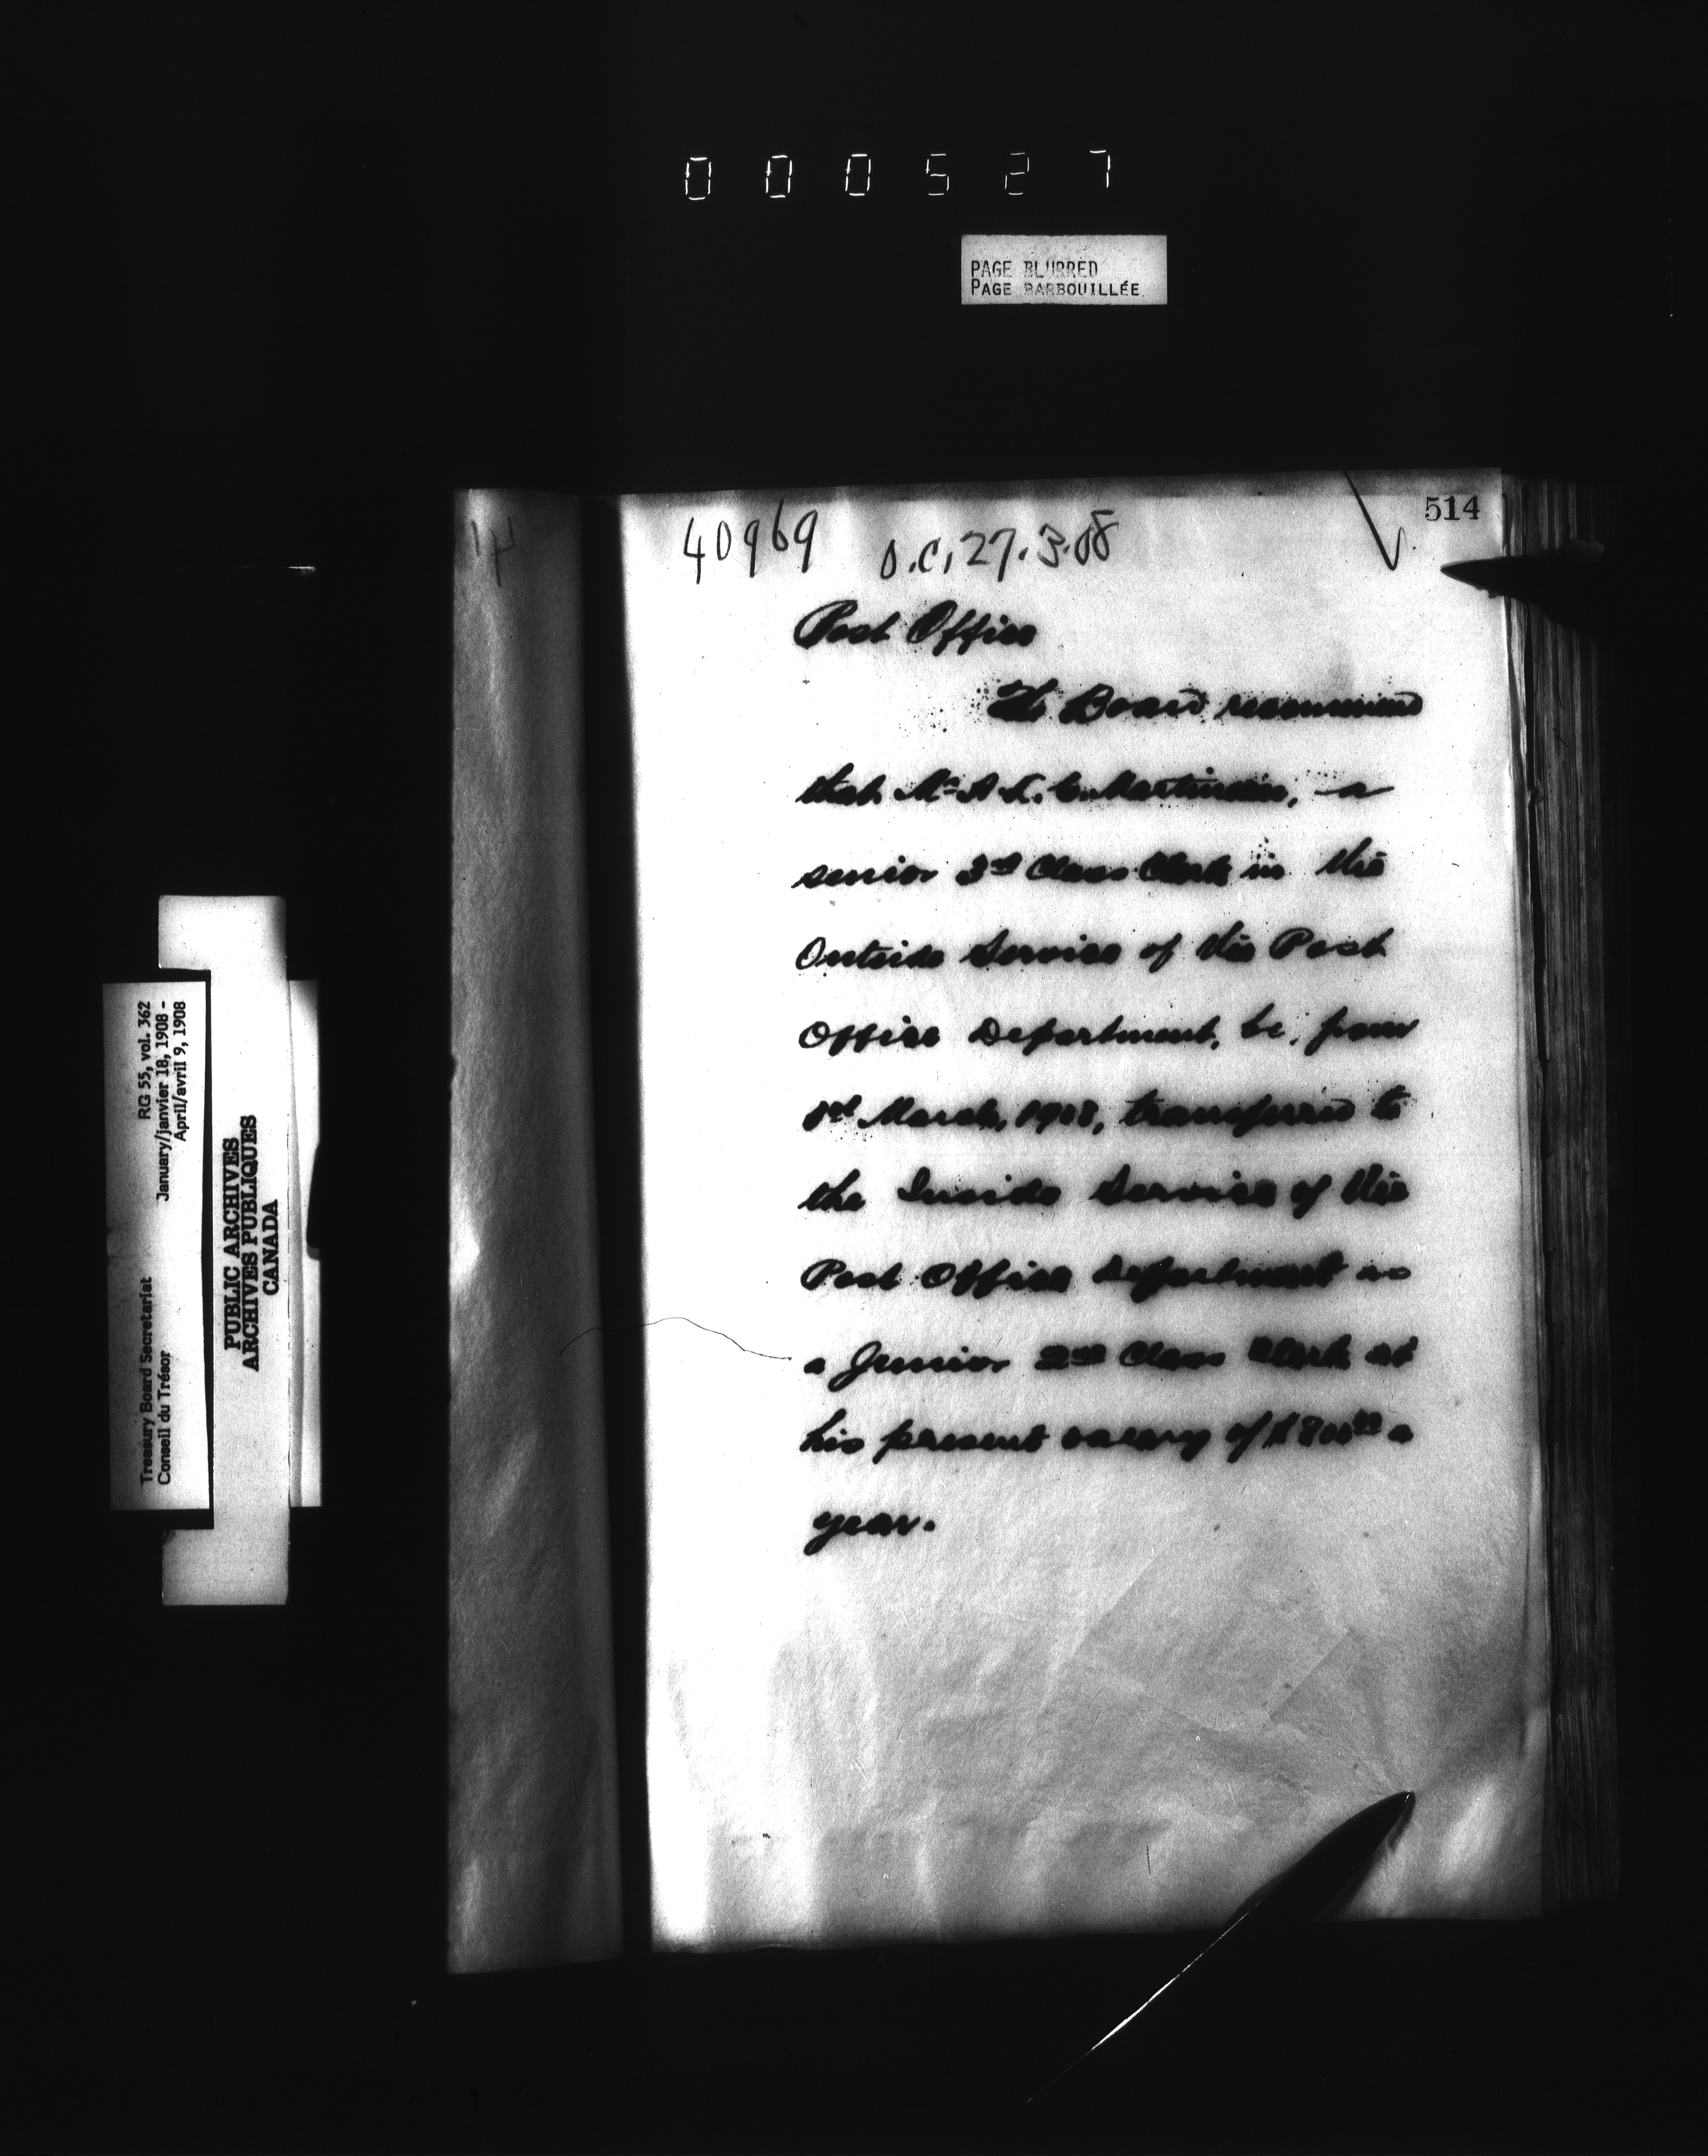 000527
PAGE BLURRED
PAGE BARBOUILLÉE
514
40969 O.C. 27.3.08
Post Office
The Board recommend
that Mr A. L. C. a
senior 3rd Class Clerk in the
Outside Service of the Post
Office Department, be, from
1st March, 1908, transferred to
the Inside Service of the
Post Office Department as
a Junior 2nd Class Clerk at
his present salary of $800.00 a
year.
RG 55, vol. 362
January/janvier 18, 1908 -
April/avril 9, 1908
Treasury Board Secretariat
Conseil du Trésor
PUBLIC ARCHIVES
ARCHIVES PUBLIQUES
CANADA